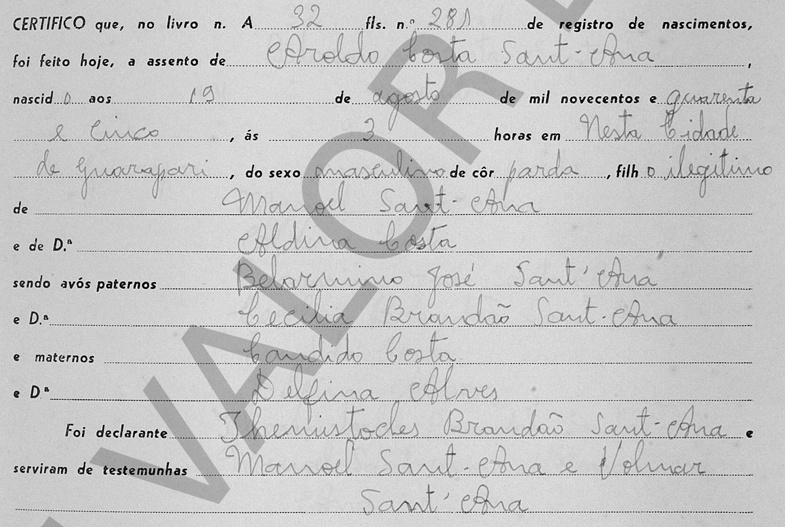 CERTIFICO que, no livro n. A 32 fls. n.º 281 de registro de nascimentos,
foi feito hoje, a assento de Aroldo Costa Sant-Ana,
nascido aos 19 de agosto de mil novecentos e quarenta
e cinco, ás 3 horas em Nesta Cidade
de Guarapari, do sexo masculino de côr parda, filho ilegitimo
de Manoel Sant-Ana
e de D.ª Aldina Costa
sendo avós paternos Belarmino José Sant'Ana
e D.ª Cecilia Brandão Sant-Ana
e maternos Candido Costa
e Dª Delfina Alves
Foi declarante Themistocles Brandão Sant-Ana e
serviram de testemunhas Manoel Sant-Ana e Volmar
Sant'Ana
VALOR